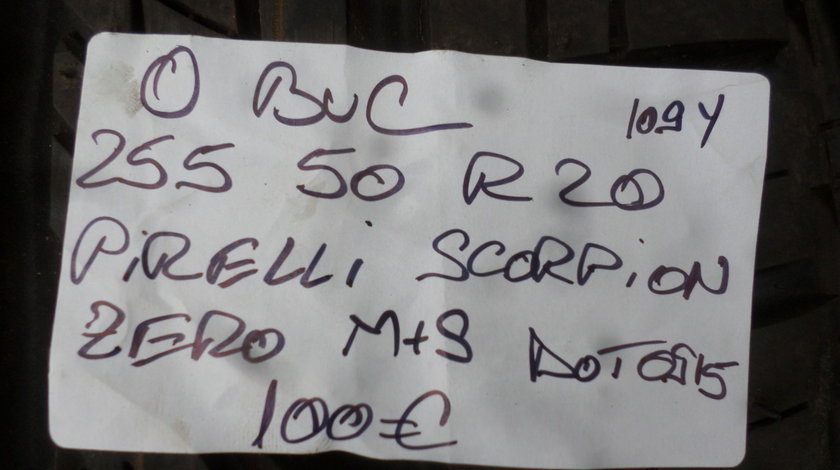 O BUC
109Y
255 50 R20
PIRELLI SCORPION
ZERO M+S
100€